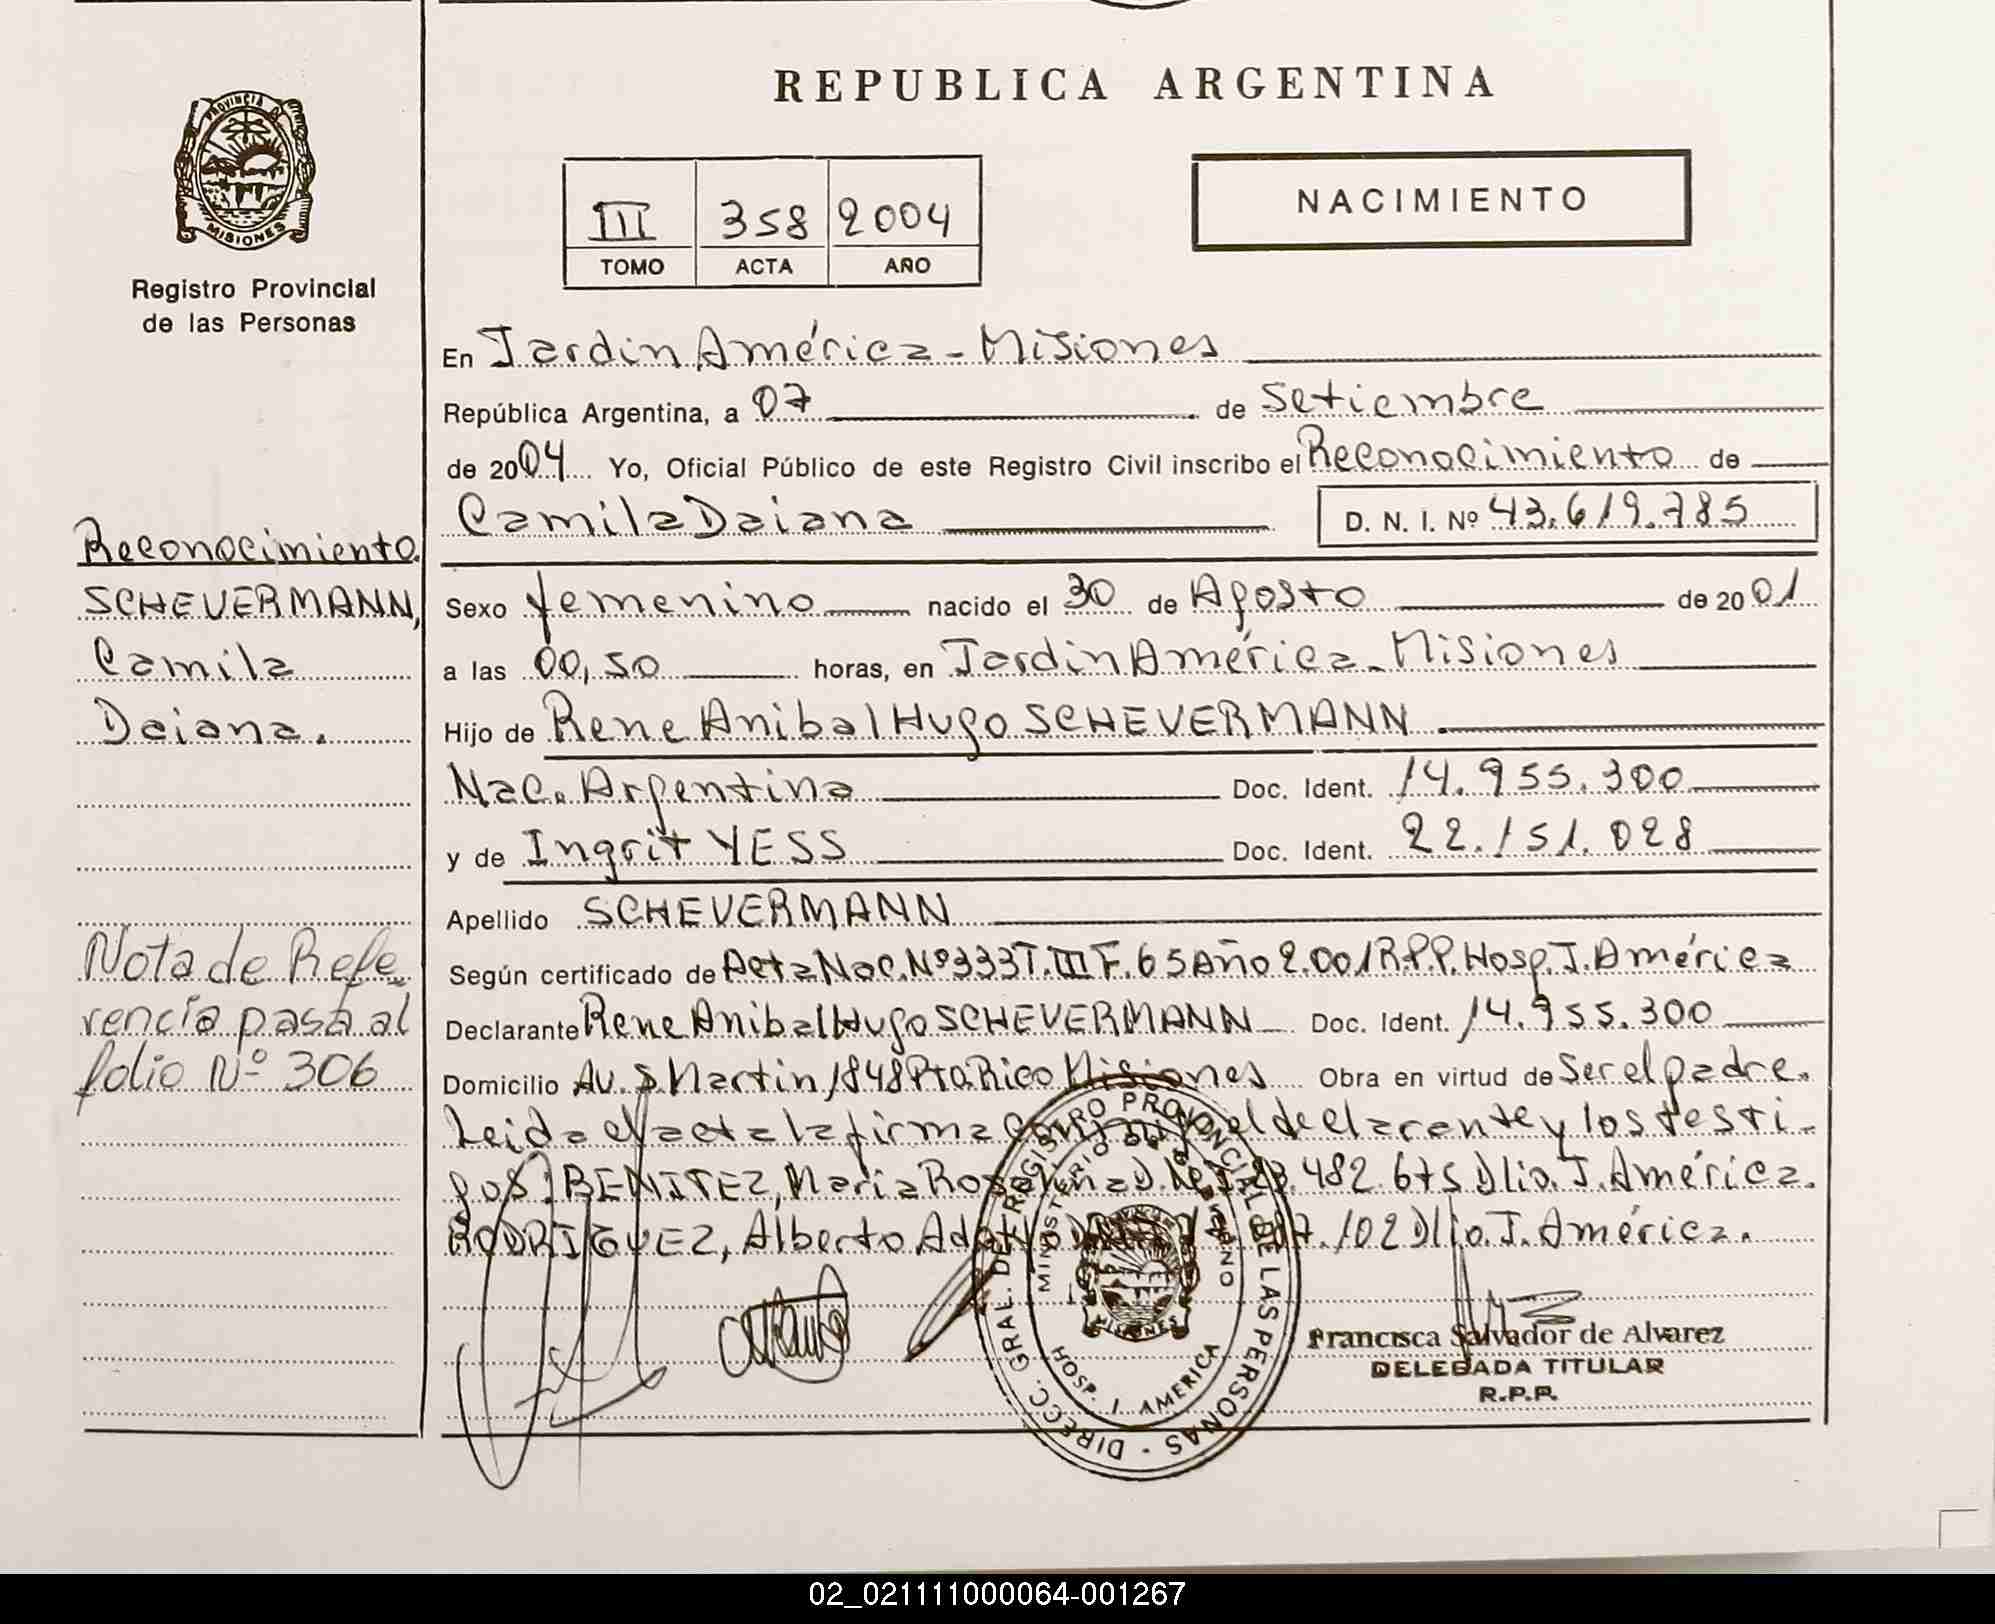 REPUBLICA ARGENTINA
PROVINCIA DE
MISIONES
Registro Provincial
de las Personas
III 358 2004
TOMO ACTA AÑO
NACIMIENTO
En Jardin América - Misiones
República Argentina, a 07 de Setiembre
de 2004 Yo, Oficial Público de este Registro Civil inscribo el Reconocimiento de
Camila Daiana D. N. I. Nº 43.619.785
Sexo femenino nacido el 30 de Agosto de 2001
a las 00,50 horas, en Jardin América - Misiones
Hijo de Rene Anibal Hugo SCHEVERMANN
Nac. Argentina Doc. Ident. 14.955.300
y de Ingrit YESS Doc. Ident. 22.151.028
Apellido SCHEVERMANN
Según certificado de Acta Nac. Nº 333 T. III F. 65 Año 2.001 R.P.P. Hosp. J. América
Declarante Rene Anibal Hugo SCHEVERMANN Doc. Ident. 14.955.300
Domicilio Av. S. Martin 1848 Pto. Rico Misiones Obra en virtud de Ser el padre.
Leida el acta la firma el declarante y los testi-
gos: BENITEZ, Maria 482.675 Dlio. J. América.
RODRIGUEZ, Alberto .102 Dlio. J. América.
Reconocimiento
SCHEVERMANN,
Camila
Daiana.
Nota de Refe
rencia pasa al
folio Nº 306
DIRECC. GRAL. DE REGISTRO PROVINCIAL DE LAS PERSONAS
MINISTERIO DE GOBIERNO
MISIONES
HOSP. J. AMERICA
Francisca Salvador de Alvarez
DELEGADA TITULAR
R.P.P.
02_021111000064-001267